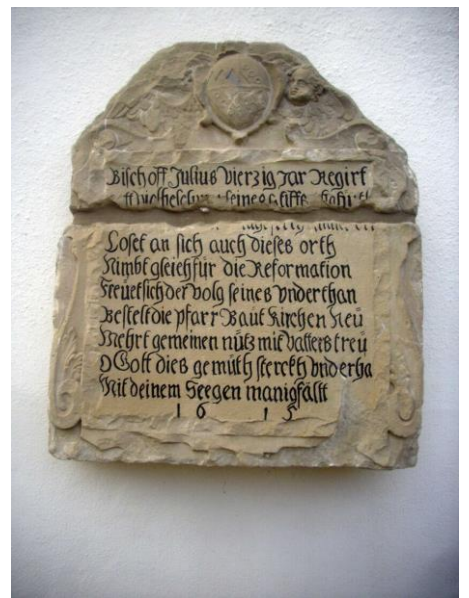 Bischoff Julius Vierzig Jar Regirt
seines stiffs
Loset an sich auch dieses orth
Nimbt gleich für die Reformation
Freuet sich der volg seines vnderthan
Bestelt die pfarr Baut Kirchen Neü
Mehrt gemeinen nütz mit vatters treü
O Gott dies gemüth sterckh vnd erha
Mit deinem Seegen manigfalt
1615